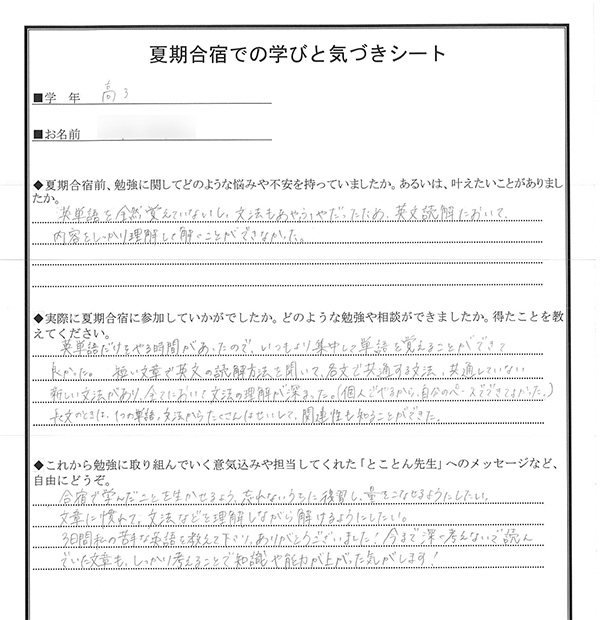 夏期合宿での学びと気づきシート
■学　年　高3
■お名前
◆夏期合宿前、勉強に関してどのような悩みや不安を持っていましたか。あるいは、叶えたいことがありまし
たか。
英単語を全然覚えていないし、文法もあやふやだったため、英文読解において、
内容をしっかり理解して解くことができなかった。
◆実際に夏期合宿に参加していかがでしたか。どのような勉強や相談ができましたか。得たことを教
えてください。
英単語だけをやる時間があったので、いつもより集中して単語を覚えることができて
良かった。 短い文章や英文の読解方法を聞いて、各文で共通する文法、共通していない
新しい文法があり、全てにおいて文法の理解が深まった。(個人でやるから、自分のペースでできてよかった。)
長文のときは、1つの単語、文法からたくさんはせいして、関連性も知ることができた。
◆これから勉強に取り組んでいく意気込みや担当してくれた「とことん先生」へのメッセージなど、
自由にどうぞ。
合宿で学んだことを生かせるよう、忘れないうちに復習し、量をこなせるようにしたい。
文章に慣れて、文法などを理解しながら解けるようにしたい。
3日間私の苦手な英語を教えて下さり、ありがとうございました！今まで深く考えないで読ん
でいた文章も、しっかり考えることで知識や能力が上がった気がします！